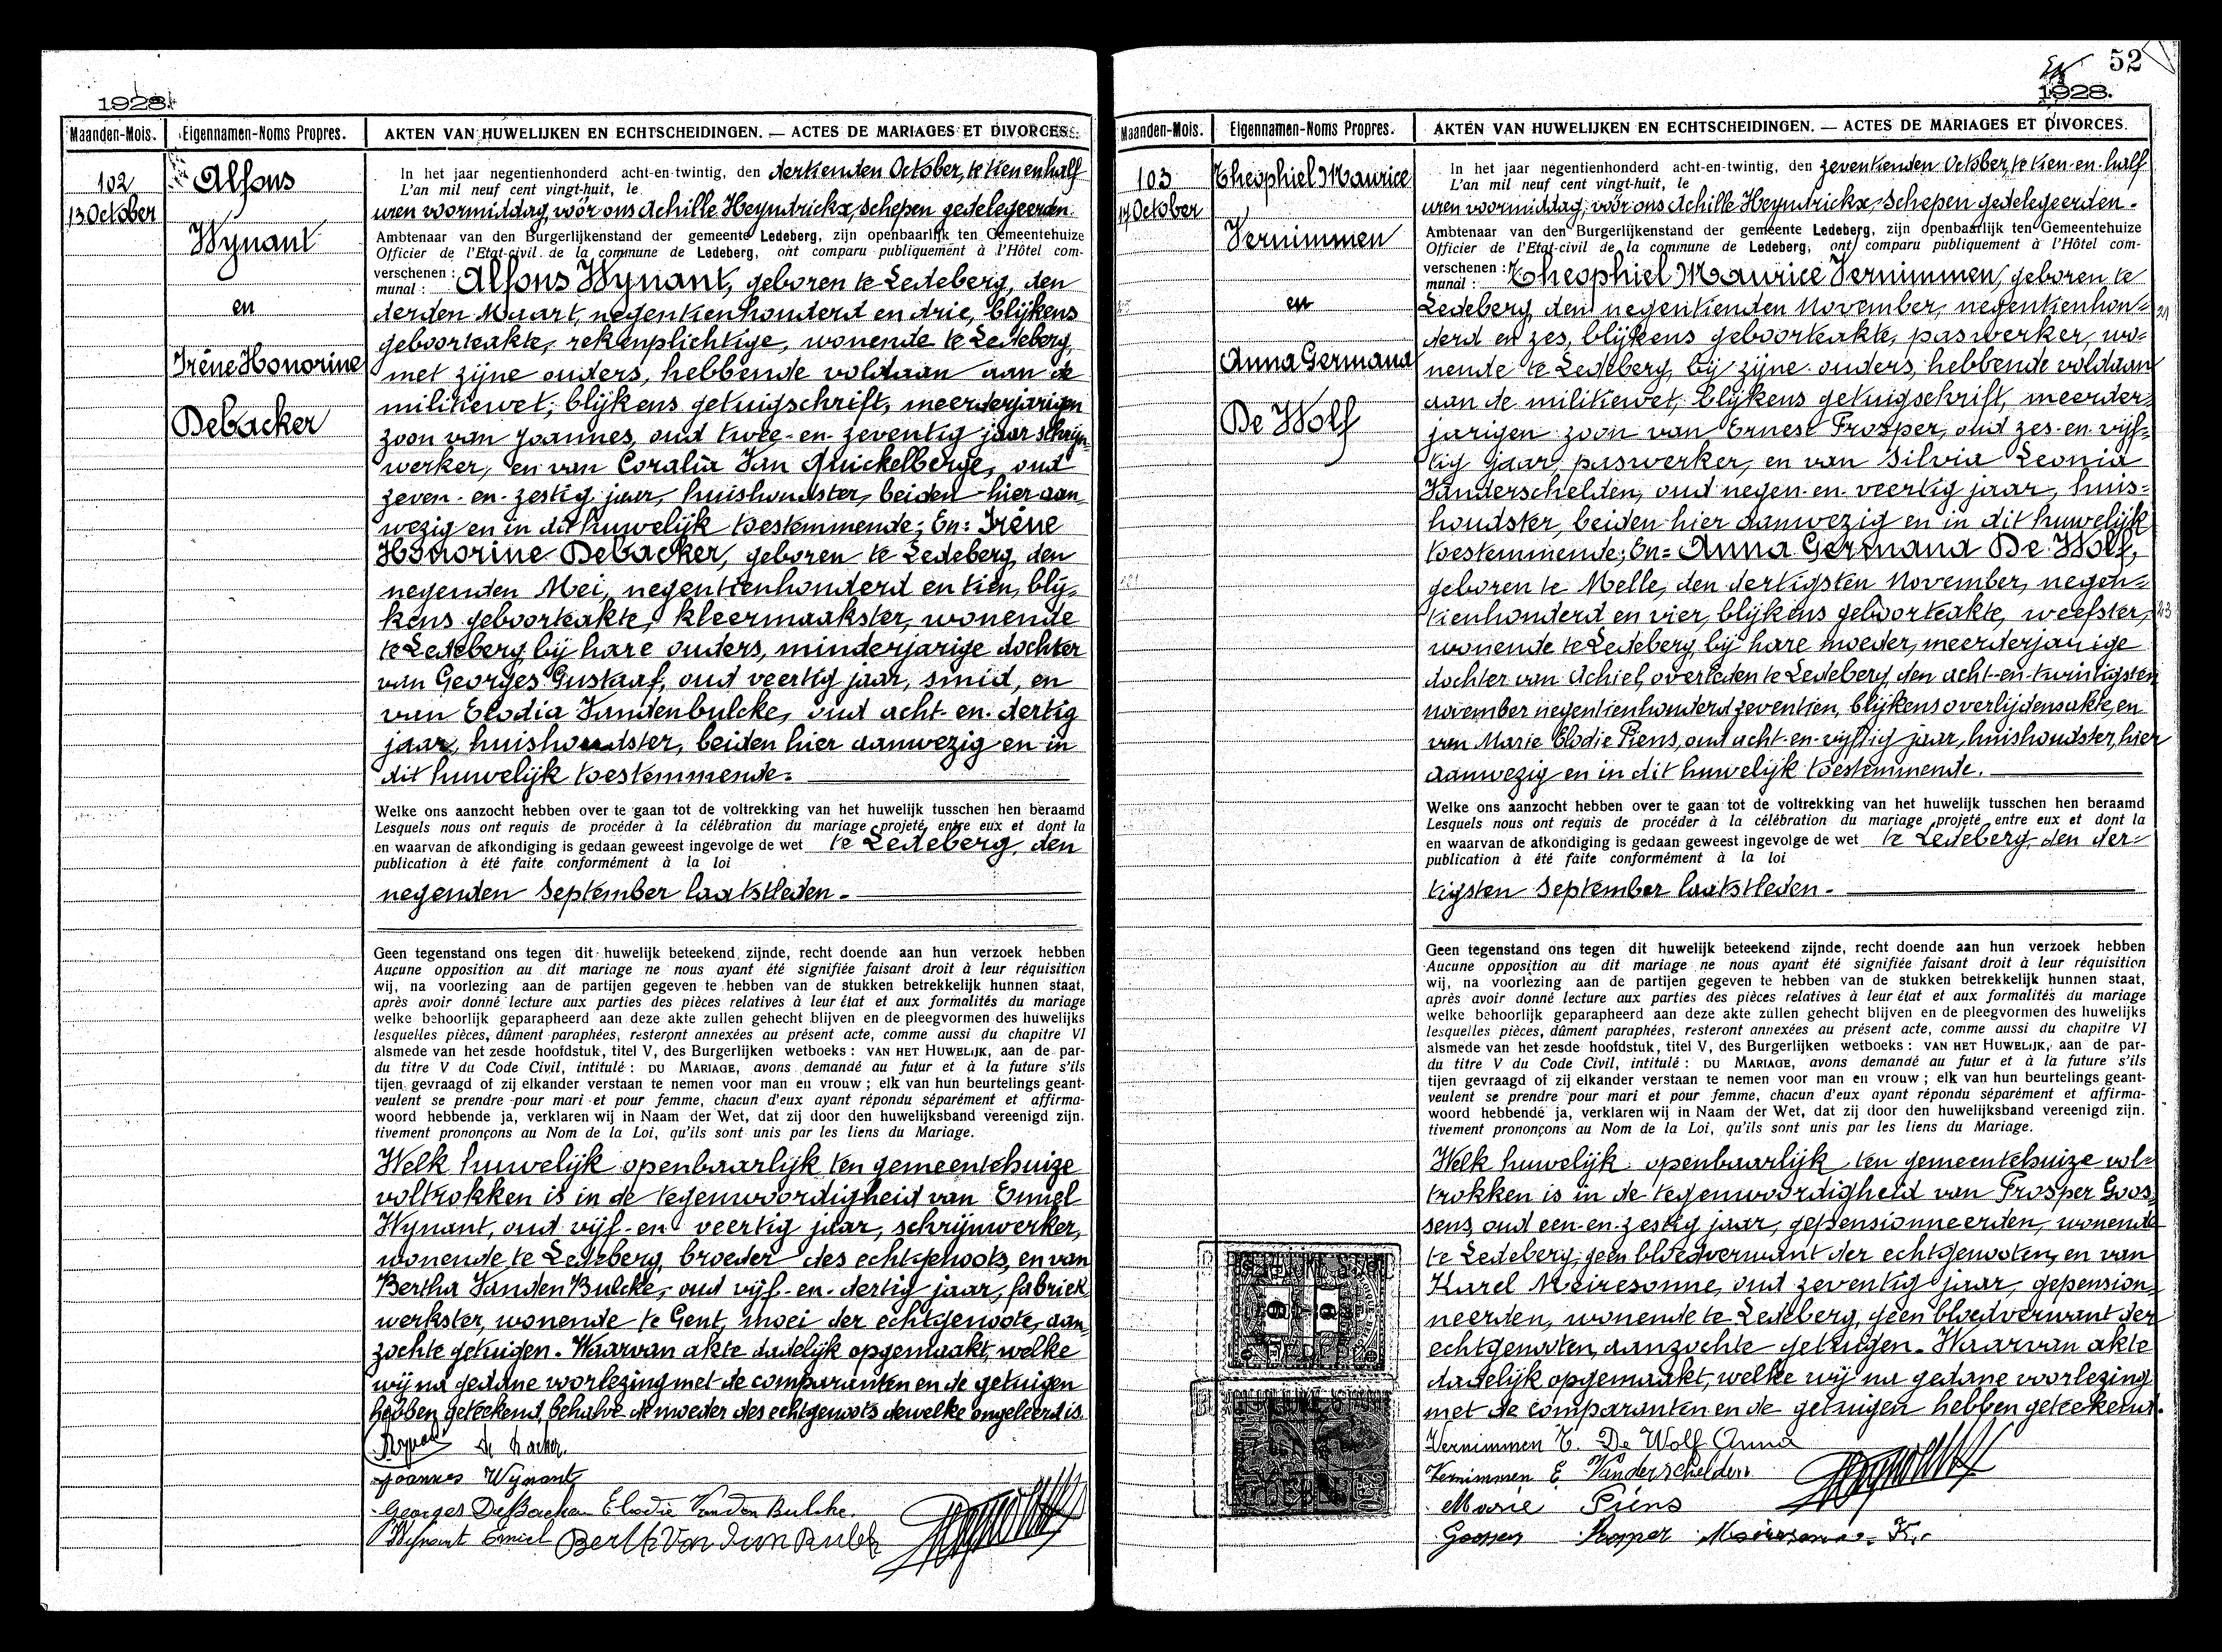 1928.
Maanden-Mois.
Eigennamen-Noms Propres.
AKTEN VAN HUWELIJKEN EN ECHTSCHEIDINGEN. — ACTES DE MARIAGES ET DIVORCES.
102
13 October
Alfons
Wynant
en
Irène Honorine
Debacker
In het jaar negentienhonderd acht-en-twintig, den dertienden October, te tien en half
L'an mil neuf cent vingt-huit, le
uren voormiddag, voor ons Achille Heyndrickx, Schepen gedelegeerden.
Ambtenaar van den Burgerlijkenstand der gemeente Ledeberg, zijn openbaarlijk ten Gemeentehuize
Officier de l'Etat-civil de la commune de Ledeberg, ont comparu publiquement à l'Hôtel com-
verschenen : Alfons Wynant, geboren te Ledeberg, den
munal :
derden Maart, negentienhonderd en drie, blijkens
geboorteakte, rekenplichtige, wonende te Ledeberg,
met zijne ouders, hebbende voldaan aan de
militiewet, blijkens getuigschrift, meerderjarigen
zoon van Joannes, oud twee-en-zeventig jaar schrijn-
werker, en van Coralia Van Quickelberge, oud
zeven-en-zestig jaar, huishoudster, beiden hier aan
wezig en in dit huwelijk toestemmende; En: Irène
Honorine Debacker, geboren te Ledeberg, den
negenden Mei, negentienhonderd en tien, blij-
kens geboorteakte, kleermaakster, wonende
te Ledeberg, bij hare ouders, minderjarige dochter
van Georges Gustaaf, oud veertig jaar, smid, en
van Elodia Vandenbulcke, oud acht-en-dertig
jaar, huishoudster, beiden hier aanwezig en in
dit huwelijk toestemmende.
Welke ons aanzocht hebben over te gaan tot de voltrekking van het huwelijk tusschen hen beraamd
Lesquels nous ont requis de procéder à la célébration du mariage projeté entre eux et dont la
en waarvan de afkondiging is gedaan geweest ingevolge de wet te Ledeberg, den
publication à été faite conformément à la loi
negenden September laatstleden.
Geen tegenstand ons tegen dit huwelijk beteekend zijnde, recht doende aan hun verzoek hebben
Aucune opposition au dit mariage ne nous ayant été signifiée faisant droit à leur réquisition
wij, na voorlezing aan de partijen gegeven te hebben van de stukken betrekkelijk hunnen staat,
après avoir donné lecture aux parties des pièces relatives à leur état et aux formalités du mariage
welke behoorlijk geparapheerd aan deze akte zullen gehecht blijven en de pleegvormen des huwelijks
lesquelles pièces, dûment paraphées, resteront annexées au présent acte, comme aussi du chapitre VI
alsmede van het zesde hoofdstuk, titel V, des Burgerlijken wetboeks : VAN HET HUWELIJK, aan de par-
du titre V du Code Civil, intitulé : DU MARIAGE, avons demandé au futur et à la future s'ils
tijen gevraagd of zij elkander verstaan te nemen voor man en vrouw ; elk van hun beurtelings geant-
veulent se prendre pour mari et pour femme, chacun d'eux ayant répondu séparément et affirma-
woord hebbende ja, verklaren wij in Naam der Wet, dat zij door den huwelijksband vereenigd zijn.
tivement prononçons au Nom de la Loi, qu'ils sont unis par les liens du Mariage.
Welk huwelijk openbaarlijk ten gemeentehuize
voltrokken is in de tegenwoordigheid van Emiel
Wynant, oud vijf-en-veertig jaar, schrijnwerker,
wonende te Ledeberg, broeder des echtgenoots, en van
Bertha VandenBulcke, oud vijf-en-dertig jaar, fabriek
werkster, wonende te Gent, moei der echtgenoote, aan-
zochte getuigen. Waarvan akte dadelijk opgemaakt, welke
wij na gedane voorlezing met de comparanten en de getuigen
hebben geteekend, behalve de moeder des echtgenoots dewelke ongeleerd is.
De Backer.
Joannes Wynant
Georges DeBacker Elodie Vanden Bulcke.
Wynant Emiel
52
1928.
Maanden-Mois.
Eigennamen-Noms Propres.
AKTEN VAN HUWELIJKEN EN ECHTSCHEIDINGEN. — ACTES DE MARIAGES ET DIVORCES.
103
17 October
Theophiel Maurice
Vernimmen
en
Anna Germana
De Wolf
In het jaar negentienhonderd acht-en-twintig, den zeventienden October, te tien-en-half
L'an mil neuf cent vingt-huit, le
uren voormiddag, voor ons Achille Heyndrickx, Schepen gedelegeerden.
Ambtenaar van den Burgerlijkenstand der gemeente Ledeberg, zijn openbaarlijk ten Gemeentehuize
Officier de l'Etat-civil de la commune de Ledeberg, ont comparu publiquement à l'Hôtel com-
verschenen : Theophiel Maurice Vernimmen, geboren te
munal :
Ledeberg, den negentienden November, negentienhon-
derd en zes, blijkens geboorteakte, paswerker, wo-
nende te Ledeberg, bij zijne ouders, hebbende voldaan
aan de militiewet, blijkens getuigschrift, meerder-
jarigen zoon van Ernest Prosper, oud zes-en-vijf-
tig jaar, paswerker, en van Silvia Leonia
Vanderschelden, oud negen-en-veertig jaar, huis-
houdster, beiden hier aanwezig en in dit huwelijk
toestemmende; En= Anna Germana De Wolf,
geboren te Melle, den dertigsten November, negen-
tienhonderd en vier, blijkens geboorteakte, weefster,
wonende te Ledeberg, bij hare moeder, meerderjarige
dochter van Achiel, overleden te Ledeberg, den acht-en-twintigsten
november negentienhonderd zeventien, blijkens overlijdensakte, en
van Marie Elodie Piens, oud acht-en-vijftig jaar, huishoudster, hier
aanwezig en in dit huwelijk toestemmende.
Welke ons aanzocht hebben over te gaan tot de voltrekking van het huwelijk tusschen hen beraamd
Lesquels nous ont requis de procéder à la célébration du mariage projeté entre eux et dont la
en waarvan de afkondiging is gedaan geweest ingevolge de wet te Ledeberg, den der-
publication à été faite conformément à la loi
tigsten September laatstleden.
Geen tegenstand ons tegen dit huwelijk beteekend zijnde, recht doende aan hun verzoek hebben
Aucune opposition au dit mariage ne nous ayant été signifiée faisant droit à leur réquisition
wij, na voorlezing aan de partijen gegeven te hebben van de stukken betrekkelijk hunnen staat,
après avoir donné lecture aux parties des pièces relatives à leur état et aux formalités du mariage
welke behoorlijk geparapheerd aan deze akte zullen gehecht blijven en de pleegvormen des huwelijks
lesquelles pièces, dûment paraphées, resteront annexées au présent acte, comme aussi du chapitre VI
alsmede van het zesde hoofdstuk, titel V, des Burgerlijken wetboeks : VAN HET HUWELIJK, aan de par-
du titre V du Code Civil, intitulé : DU MARIAGE, avons demandé au futur et à la future s'ils
tijen gevraagd of zij elkander verstaan te nemen voor man en vrouw ; elk van hun beurtelings geant-
veulent se prendre pour mari et pour femme, chacun d'eux ayant répondu séparément et affirma-
woord hebbende ja, verklaren wij in Naam der Wet, dat zij door den huwelijksband vereenigd zijn.
tivement prononçons au Nom de la Loi, qu'ils sont unis par les liens du Mariage.
Welk huwelijk openbaarlijk ten gemeentehuize vol-
trokken is in de tegenwoordigheid van Prosper Goos-
sens, oud een-en-zestig jaar, gepensionneerden, wonende
te Ledeberg, geen bloedverwant der echtgenooten, en van
Karel Meiresonne, oud zeventig jaar, gepension-
neerden, wonende te Ledeberg, geen bloedverwant der
echtgenooten, aanzochte getuigen. Waarvan akte
dadelijk opgemaakt, welke wij na gedane voorlezing
met de comparanten en de getuigen hebben geteekend.
Vernimmen T. De Wolf Anna
Vernimmen E. Vanderschelden
Marie Piens
Goossens Prosper Meiresonne. K.